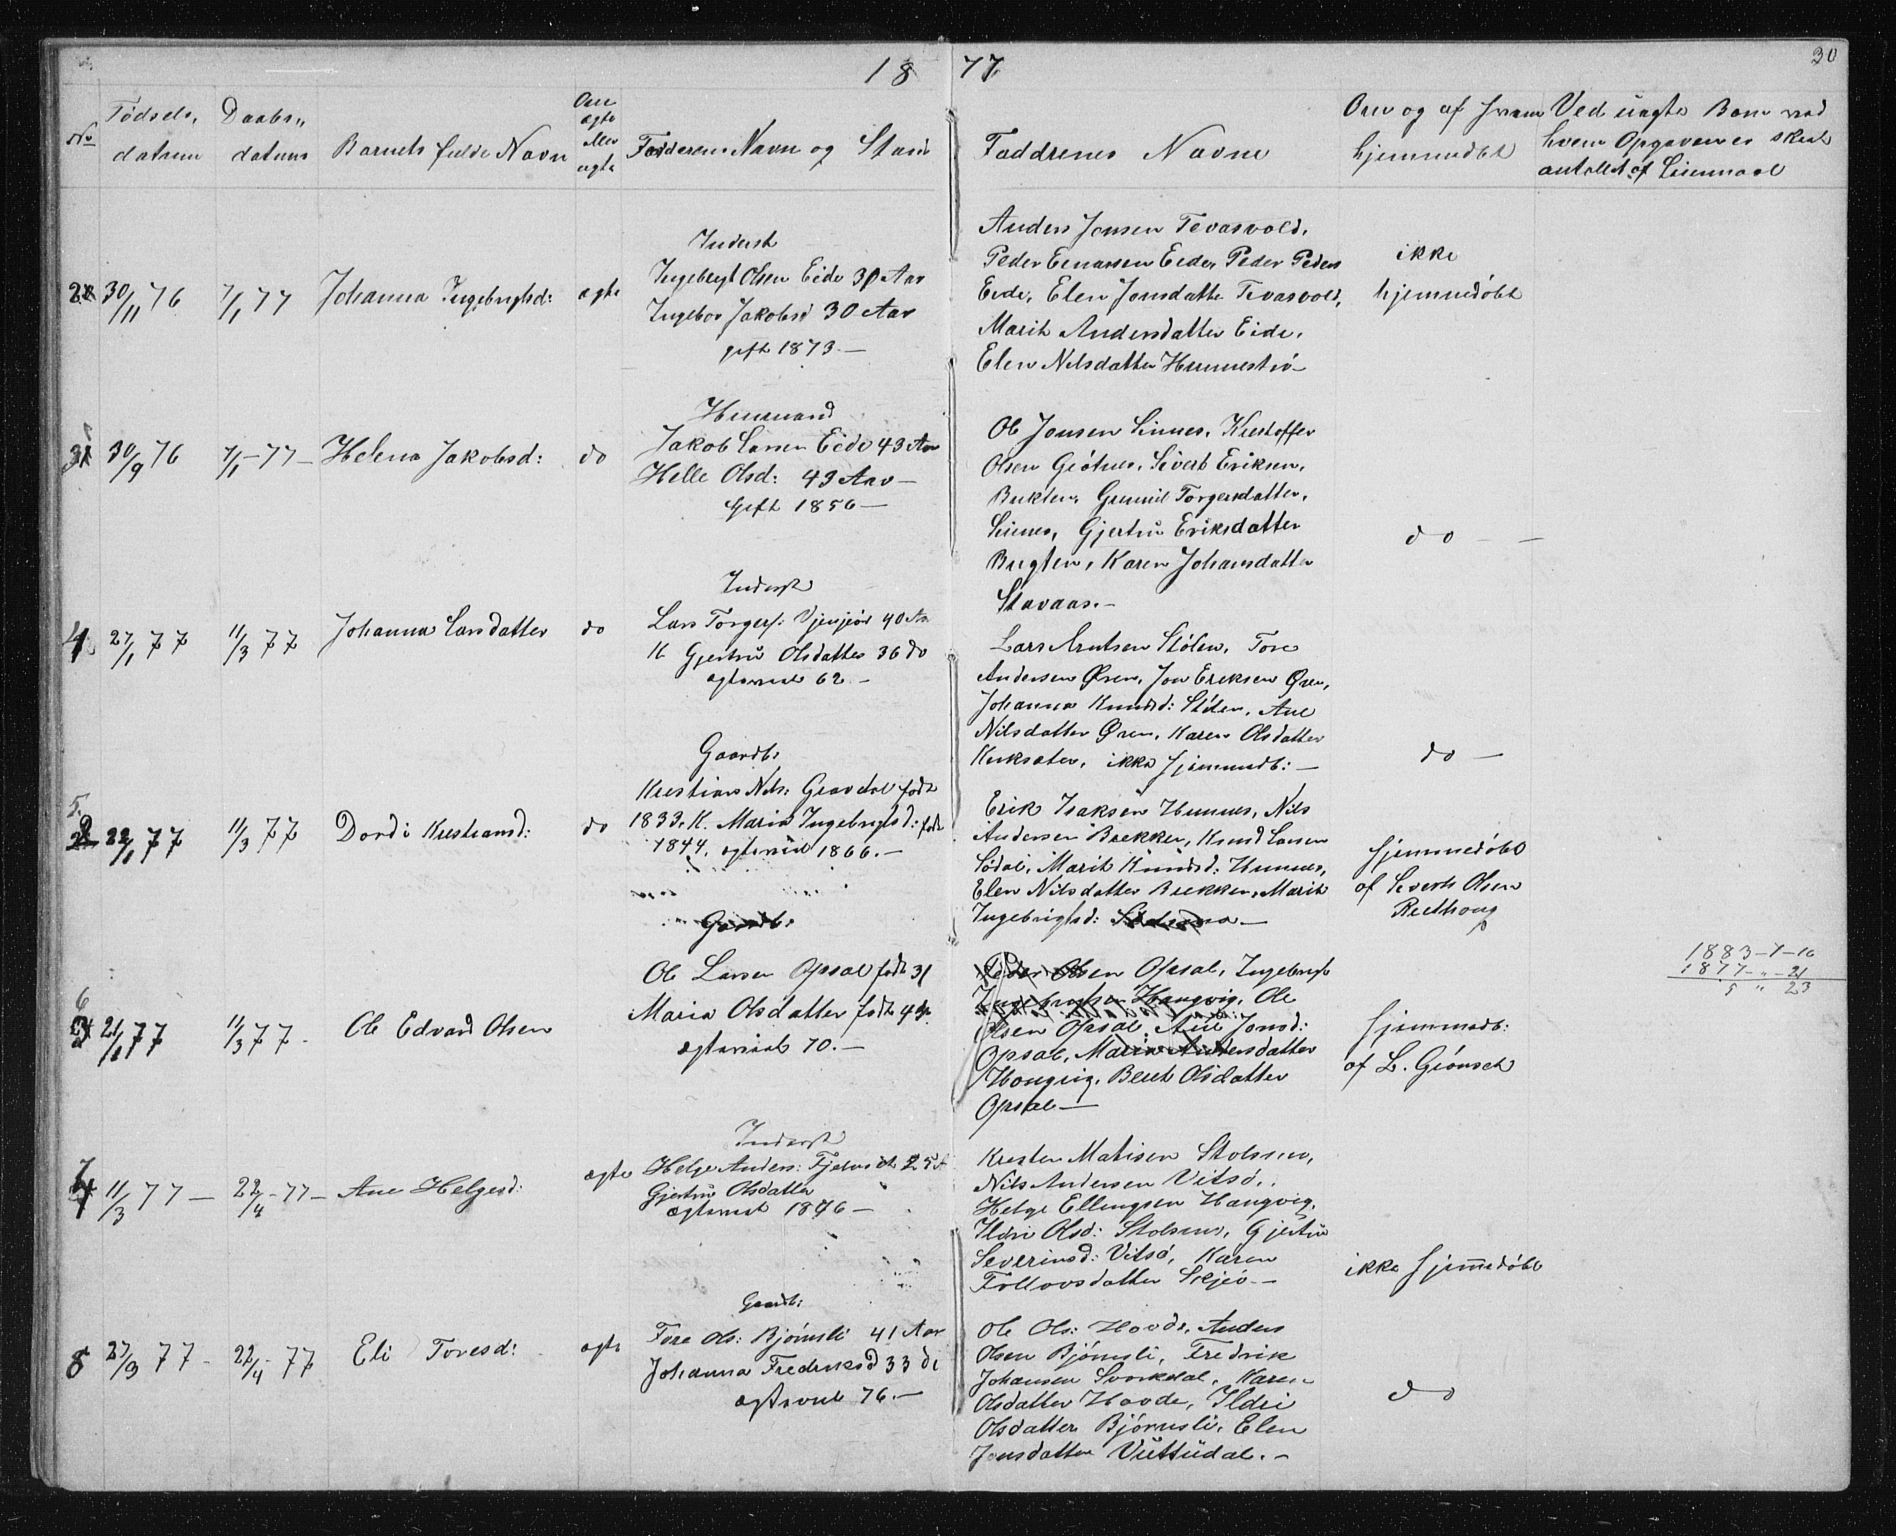 18 77
30
No
Fødsels,
datum
Daabs,,
datum
Barnets fulde Navn
Om
ægte
eller
uægte
Fadderens Navn og Stand
Faddrenes Navne
Om og af hvem
hjemmedøbt
Ved uægte Børn ved
hvem Opgaven er skeet
antallet af Leiermaal
30/11 76 7/1 77 Johanna Ingebrigtsd: ægte
Inderst
Ingebrigt Olsen Eide 30 Aar
Ingebor Jakobsd 30 Aar
gift 1873.—
Anders Jonsen Tevasvold,
Peder Einarsen Eide, Peder Peders
Eide, Elen Jonsdatter Tevasvold,
Marit Andersdatter Eide,
Elen Nilsdatter
ikke
hjemmedøbt
30/9 76 7/1—77— Helena Jakobsd: do
Huusmand
Jakob Larsen Eide 43 Aar
Helle Olsd: 43 Aar—
Gift 1856—
Ole Jonsen Linnes, Kristoffer
Olsen Grótnes, Sivert Eriksen,
Bukten, Gunnil Torgersdatter,
Linnes, Gjertru Eriksdatter
Bugten, Karen Johansdatter
Stavaas.—
do — —
4 27/1 77 11/3 77 Johanna Larsdatter do
Inderst
Lars Torgers: 40 Aar
K Gjertru Olsdatter 36 do
ægteviet 62.—
Lars Knutsen Stölen, Tore
Andersen Øren, Jon Eriksen Øren,
Johanna Knudsd: Stölen, Ane
Nilsdatter Øren, Karen Olsdatter
ikke hjemmedb:—
do —
5. 22/1 77 11/3 77 Dordi Kristiansd: do
Gaardb:
Kristian Nils: Gravdal født
1833. K. Maria Ingebrigtsd: født
1844. ægteviet 1866.—
Erik Isaksen Hunnes, Nils
Andersen Brekken, Knud Larsen
Södal, Marit Knudsd: Hunnes,
Elen Nilsdatter Brekken, Marit
Ingebrigtsd:
hjemmedöbt
af Siverts Olsen
6 21/1 77 11/3 77. Ole Edvard Olsen
Gaardb:
Ole Larsen Opsal født 31
Maria Olsdatter født 43
ægteviet 70.—
Peder Olsen Opsal, Ingebrigt
Haugvig, Ole
Olsen Opsal, Ane Jonsd:
Opsal, Maria Andersdatter
Hougvig, Berit Olsdatter
Opsal—
hjemmedb:
af L. Grönset
1883—7—16
1877—"—21
5 " 23
7 11/3 77— 22/4—77— Ane Helgesd: ægte
Inderst
Helge Anders: 25 A
Gjertru Olsdatter
ægteviet 1876—
Krister Matisen Stolsmo,
Nils Andersen Vitsö,
Helge Ellingsen Haugvig,
Ildri Olsd: Stolsmo, Gjertru
Severinsd: Vitsö, Karen
Skjeö—
ikke hjemmedöbt
8 27/3 77— 22/4—77 Eli Toresd: ægte
Gaardb:
Tore Ols: Bjórnsli 41 Aar
Johanna Fredriksd 33 do
ægteviet 76.—
Ole Ols: Hovde, Anders
Olsen Bjórnsli, Fredrik
Johansen Svorkdal, Karen
Olsdatter Hovde, Ildri
Olsdatter Bjórnsli, Elen
Jonsdatter Vuttudal.—
do